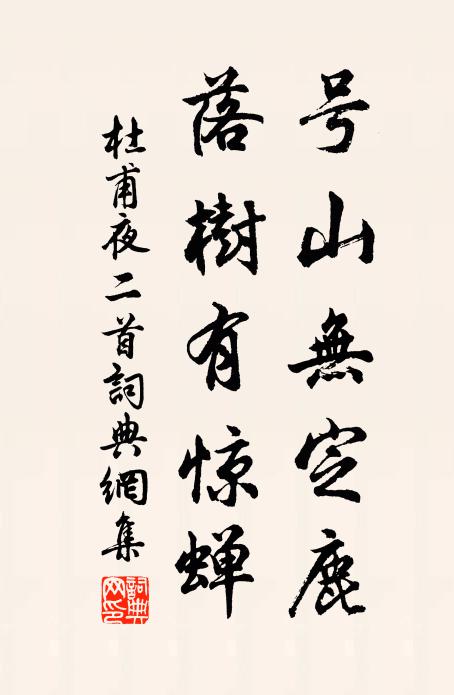 号山無定鹿
落樹有惊蝉
杜甫夜二首詞典網集
詞典網印